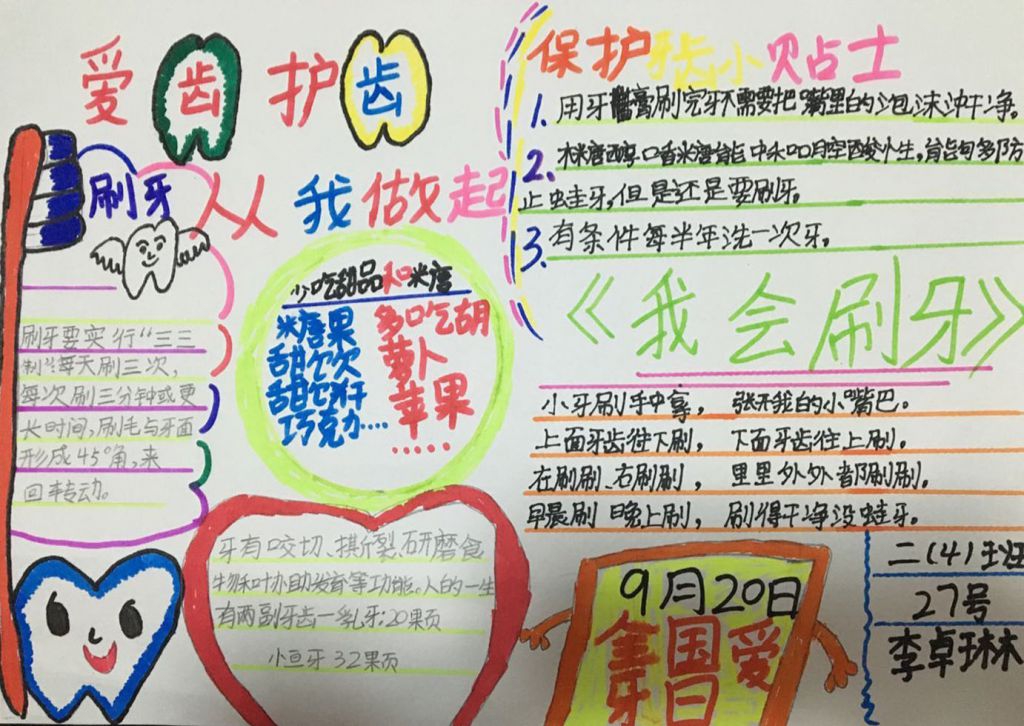 爱齿护齿
从我做起
刷牙
刷牙要实行“三三
制”每天刷三次，
每次刷三分钟或更
长时间，刷毛与牙面
形成45°角，来
回转动。
少吃甜品和米唐
米唐果
甜饮
甜饼
巧克力....
多吃胡
萝卜
苹果
.....
牙有咬切、撕裂、研磨食
物和协助发音等功能。人的一生
有两副牙齿—乳牙：20颗
恒牙32颗
保护牙齿小贴士
1. 用牙膏刷完牙不需要把嘴里的泡沫冲干净。
2. 木糖醇口香糖能中和口腔酸性，能够预防
止虫蛀牙，但是还是要刷牙。
3. 有条件每半年洗一次牙。
《我会刷牙》
小牙刷手中拿， 张开我的小嘴巴。
上面牙齿往下刷， 下面牙齿往上刷。
在刷刷、右刷刷， 里里外外都刷刷。
早晨刷 晚上刷， 刷得干净没蛀牙。
9月20日
全国爱
牙日
二（4）班
27号
李卓琳